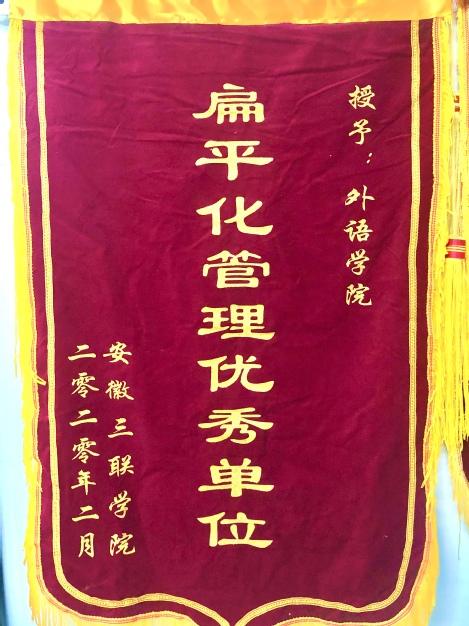 授予：外语学院
扁平化管理优秀单位
安徽三联学院
二零二零年二月